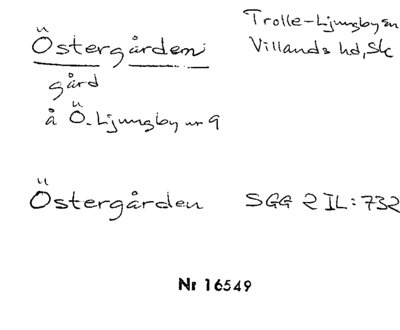 Östergården
Trolle-Ljungby sn
Villands hd, Sk
gård
å Ö. Ljungby nr 9
Östergården SGG 2 IL: 732
Nr 16549